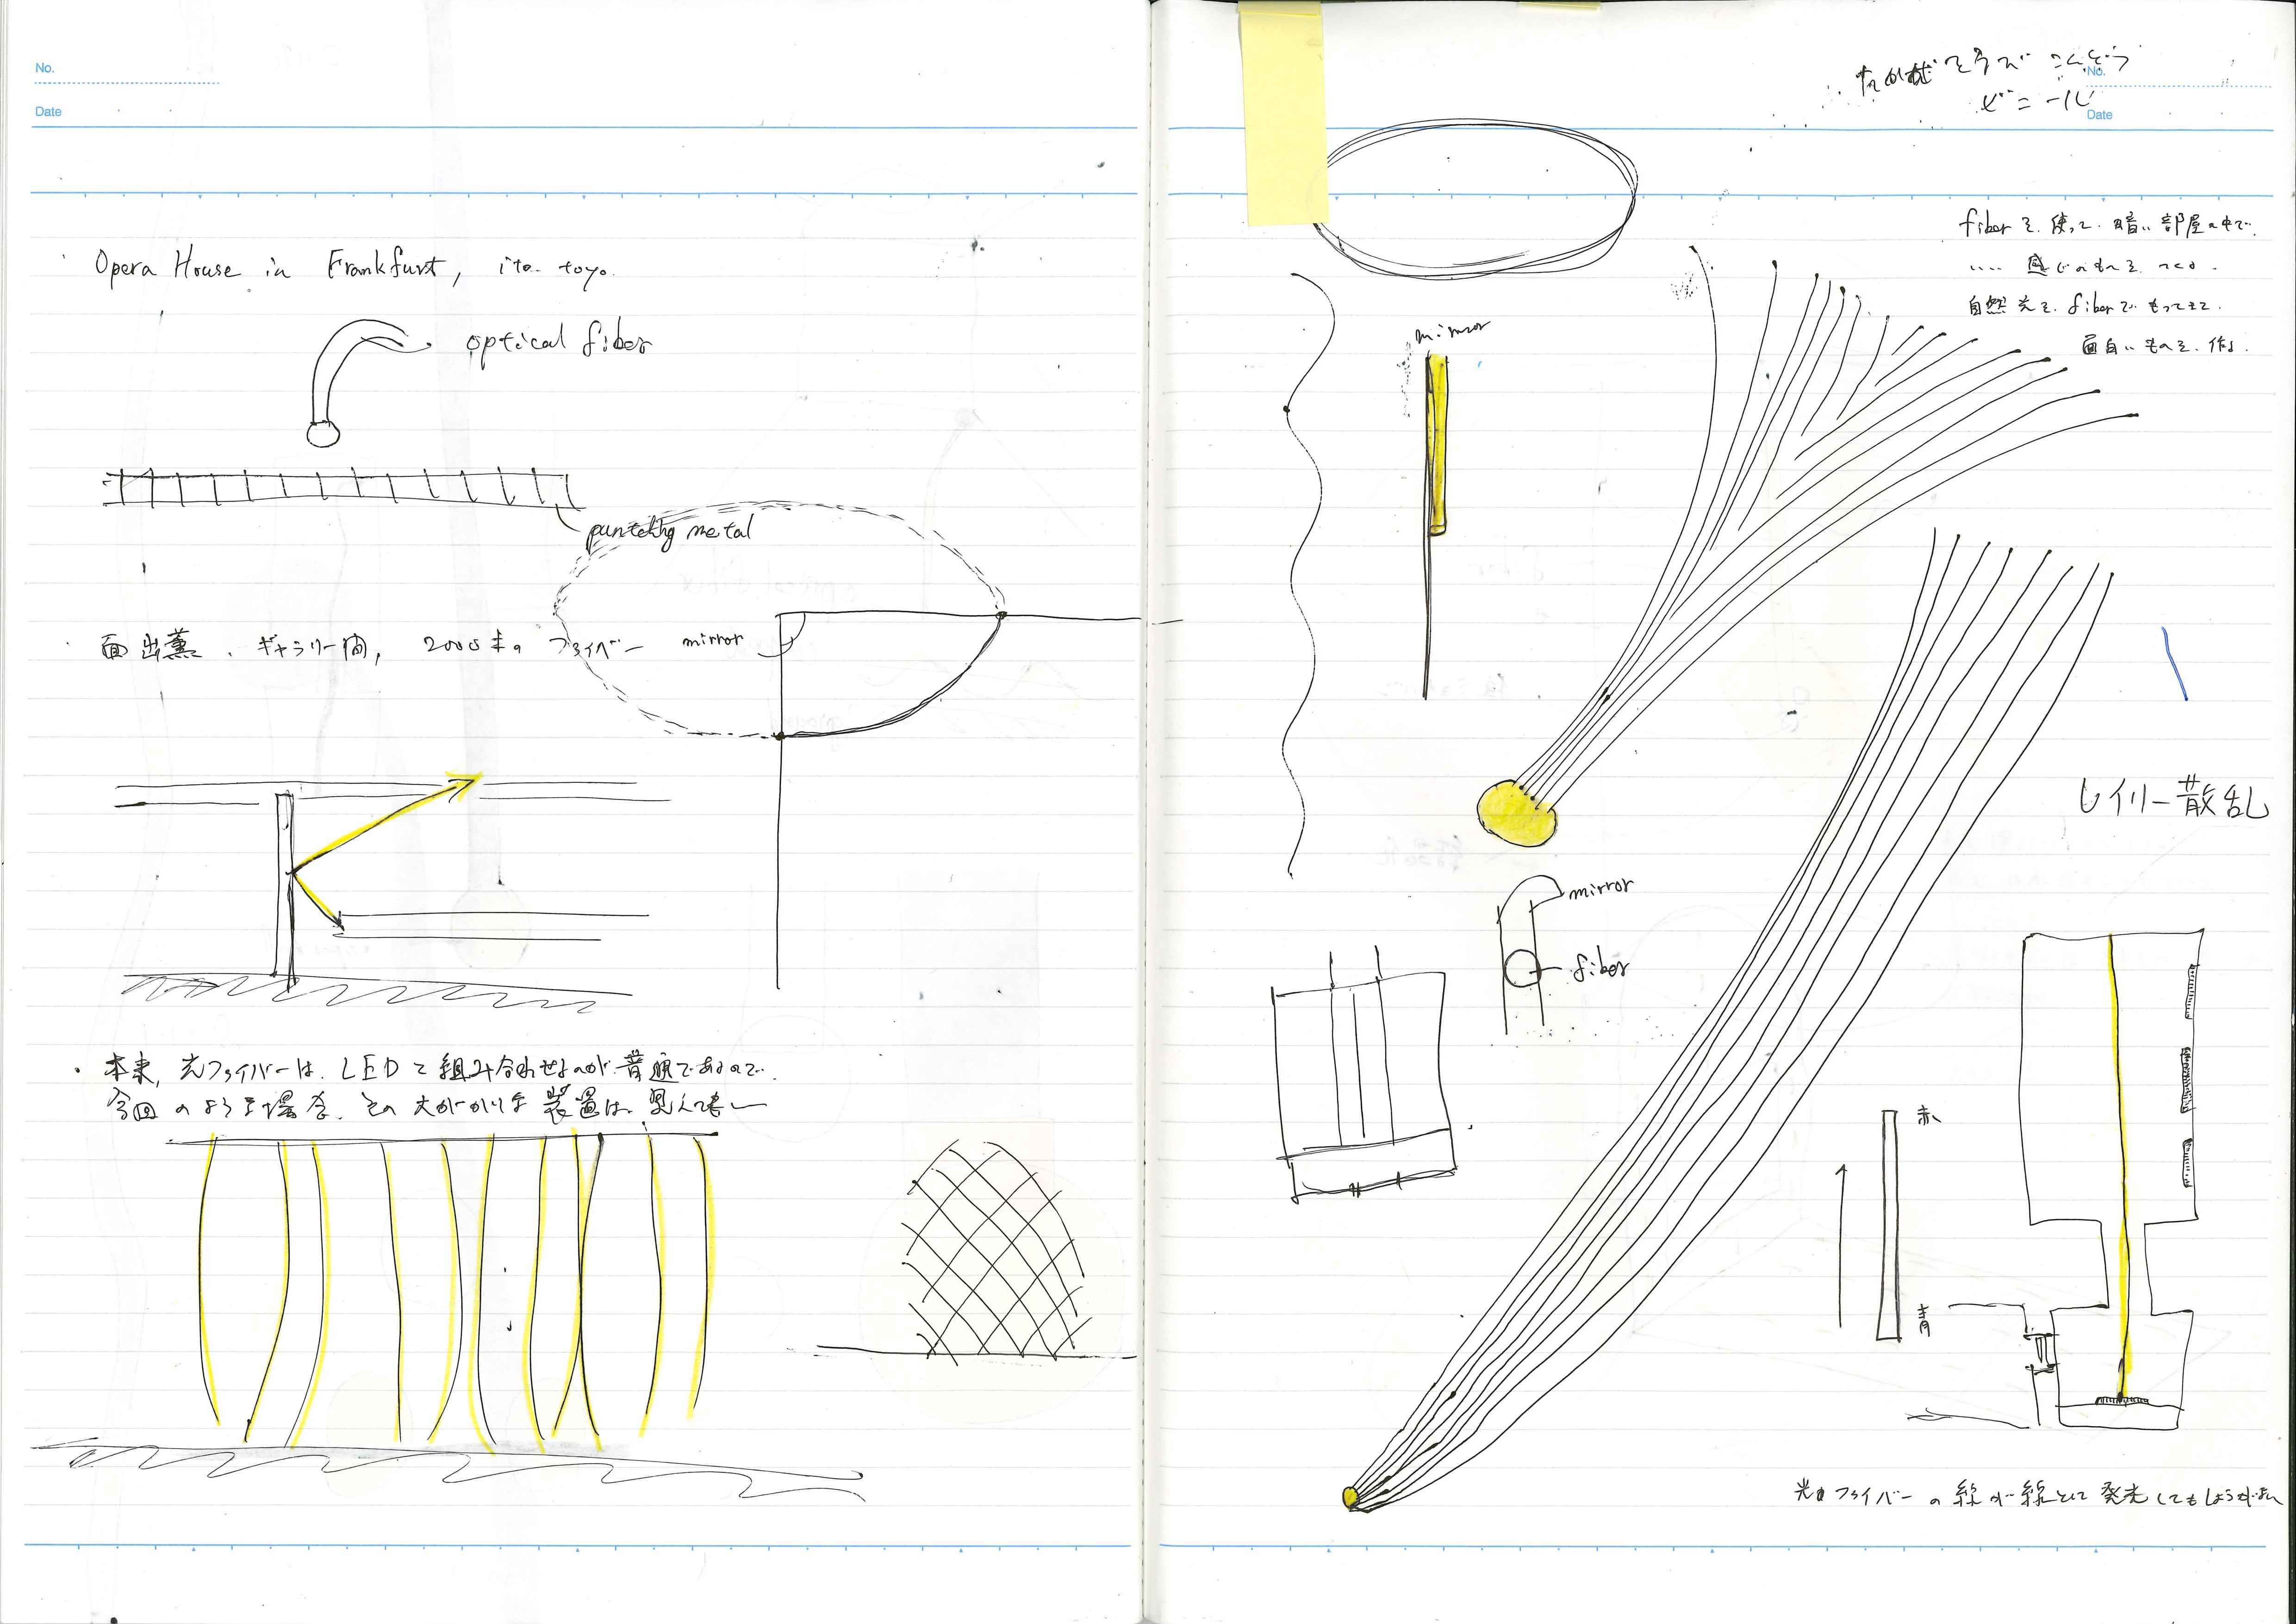 No.
Date
Opera House in Frankfurt, ito toyo.
optical fiber
punching metal
面出薫、ギャラリー間, 2000本のファイバー
mirror
・本来, 光ファイバーは、LEDと組み合わせるのが普通であるので、
今回のような場合、その大がかりな装置は、見えて
No.
ビニール
Date
fiberを使って、暗い部屋の中で、
.... 感じのものをつくる.
自然光を、fiberでもってきて、
面白いものを、作る.
mirror
レイリー散乱
mirror
fiber
赤
青
光ファイバーの線が線として発光してもしょうがない